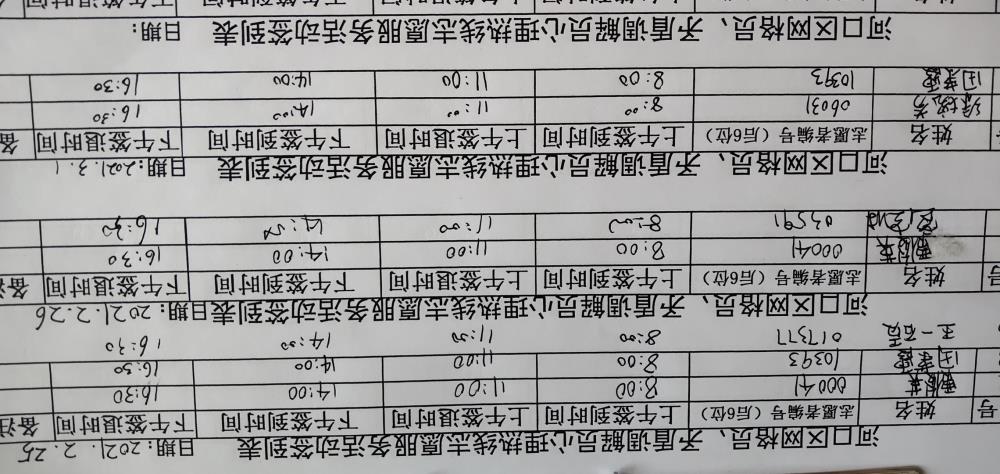 河口区网格员、矛盾调解员心理热线志愿服务活动签到表 日期：2021.2.25
号 姓名 志愿者编号（后6位） 上午签到时间 上午签退时间 下午签到时间 下午签退时间 备注
00041 8:00 11:00 14:00 16:30
10393 8:00 11:00 14:00 16:30
017377 8:00 11:00 14:00 16:30
河口区网格员、矛盾调解员心理热线志愿服务活动签到表 日期：2021.2.26
号 姓名 志愿者编号（后6位） 上午签到时间 上午签退时间 下午签到时间 下午签退时间 备注
00041 8:00 11:00 14:00 16:30
03591 8:00 11:00 14:00 16:30
河口区网格员、矛盾调解员心理热线志愿服务活动签到表 日期：2021.3.1
姓名 志愿者编号（后6位） 上午签到时间 上午签退时间 下午签到时间 下午签退时间 备
06031 8:00 11:00 14:00 16:30
10393 8:00 11:00 14:00 16:30
河口区网格员、矛盾调解员心理热线志愿服务活动签到表 日期：